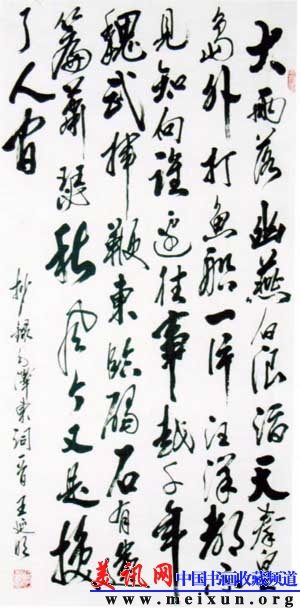 大雨落幽燕白浪滔天秦皇
岛外打鱼船一片汪洋都不
见知向谁边往事越千年
魏武挥鞭东临碣石有遗
篇萧瑟秋风今又是换
了人间
抄录毛泽东词一首 王
美讯网 中国书画收藏
www.meixun.org